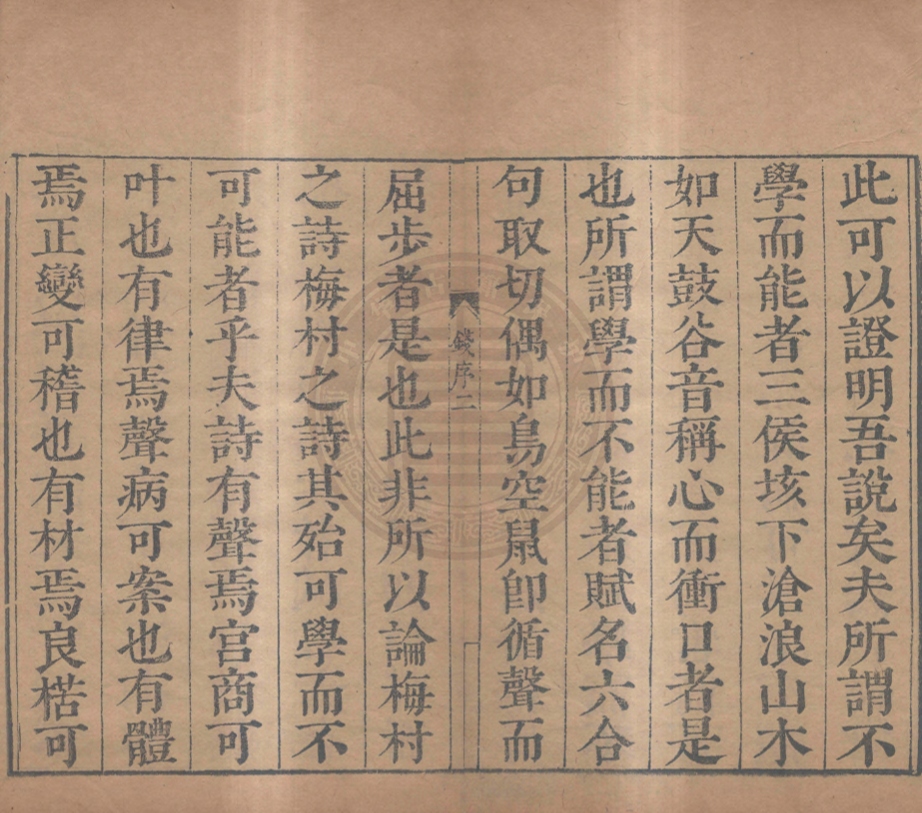 此可以證明吾說矣夫所謂不
學而能者三侯垓下滄浪山木
如天鼓谷音稱心而衝口者是
也所謂學而不能者賦名六合
句取切偶如鳥空鼠卽循聲而
錢序二
屈步者是也此非所以論梅村
之詩梅村之詩其殆可學而不
可能者乎夫詩有聲焉宮商可
叶也有律焉聲病可案也有體
焉正變可稽也有材焉良楛可